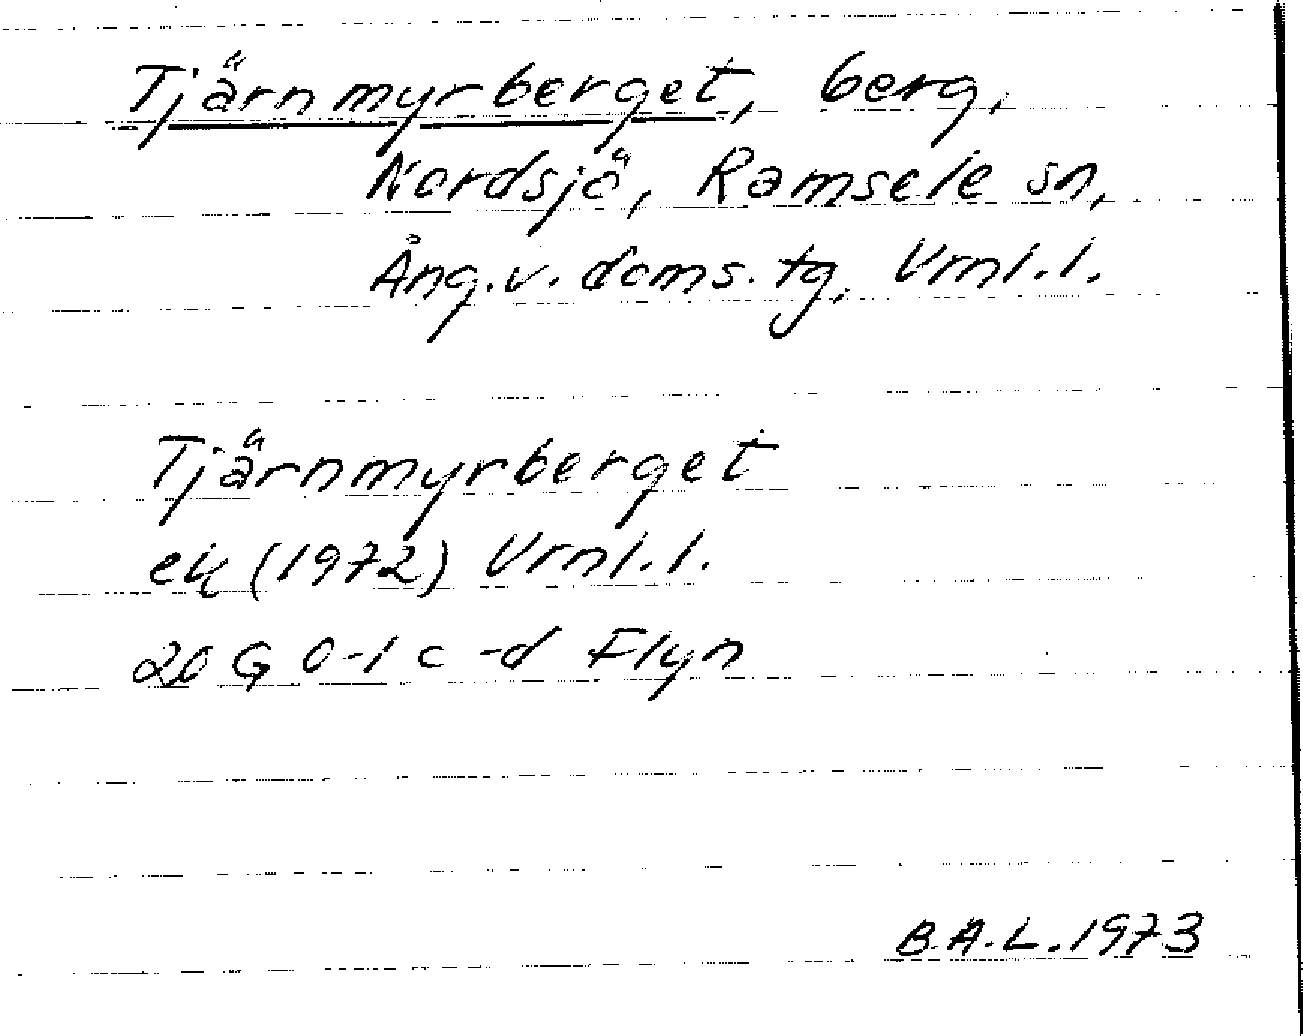 Tjärnmyrberget, berg,
Nordsjö, Ramsele sn,
Ång.v. doms. tg, Vrnl.l.
Tjärnmyrberget
ek (1972) Vrnl.l.
20 G 0-1 c-d Flyn
B.A.L. 1973